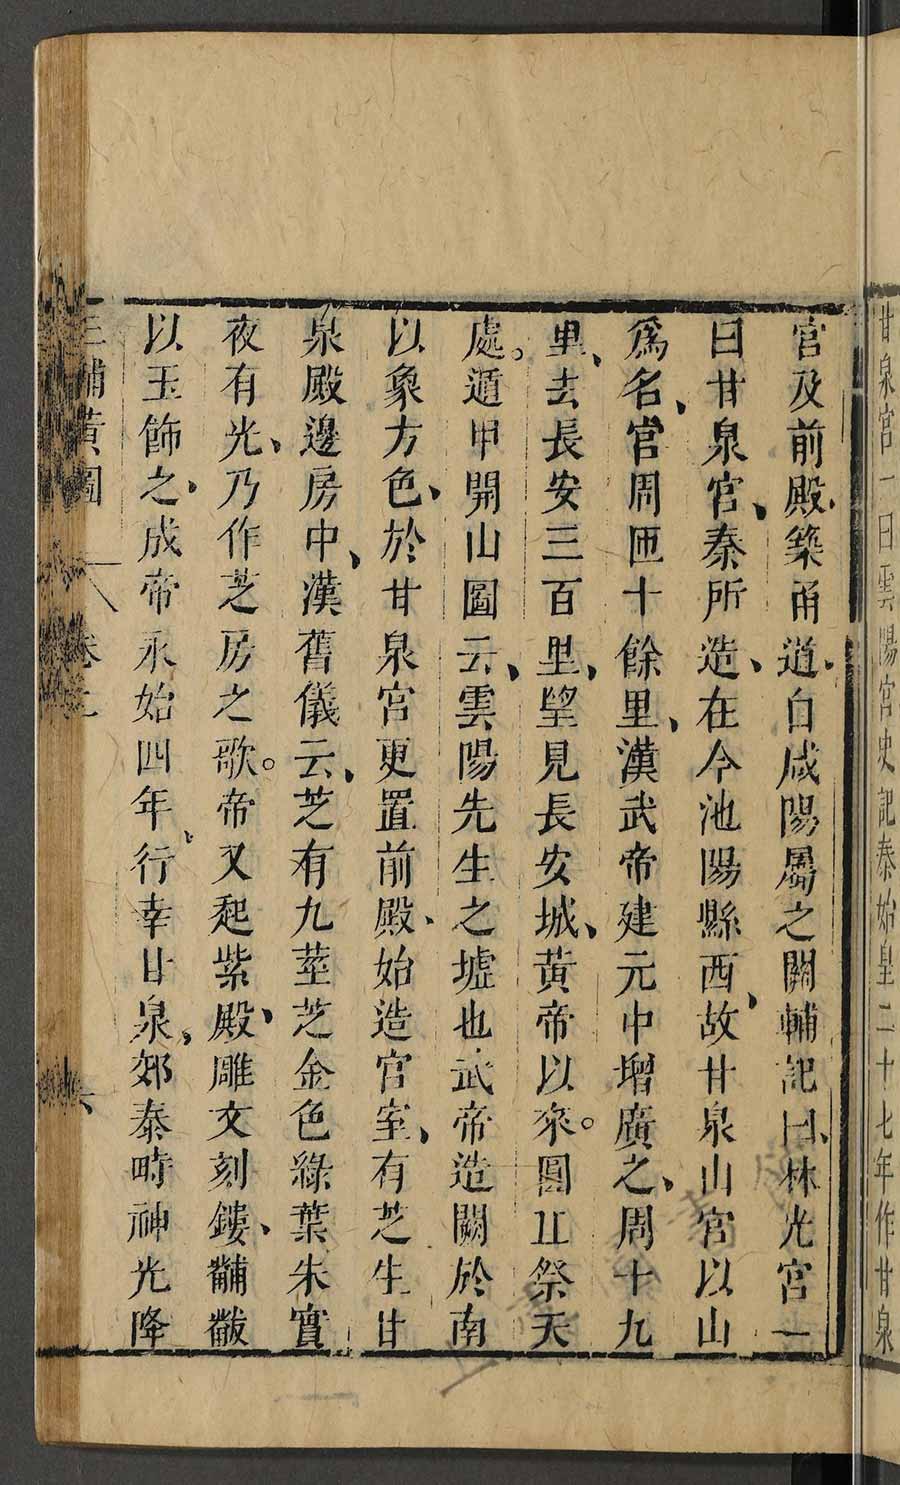 甘泉宮一曰雲陽宮史記秦始皇二十七年作甘泉
宮及前殿、築甬道、自咸陽屬之關輔記曰、林光宮一
曰甘泉宮、秦所造、在今池陽縣西、故甘泉山宮以山
爲名、宮周匝十餘里、漢武帝建元中增廣之、周十九
里、去長安三百里、望見長安城、黃帝以來。圜丘祭天
處。遁甲開山圖云、雲陽先生之墟也武帝造闕於南
以象方色、於甘泉宮更置前殿、始造宮室、有芝生甘
泉殿邊房中、漢舊儀云、芝有九莖芝金色綠葉朱實
夜有光、乃作芝房之歌。帝又起紫殿、雕文刻鏤、黼黻
以玉飾之、成帝永始四年、行幸甘泉、郊泰畤神光降
三輔黃圖 卷二 六